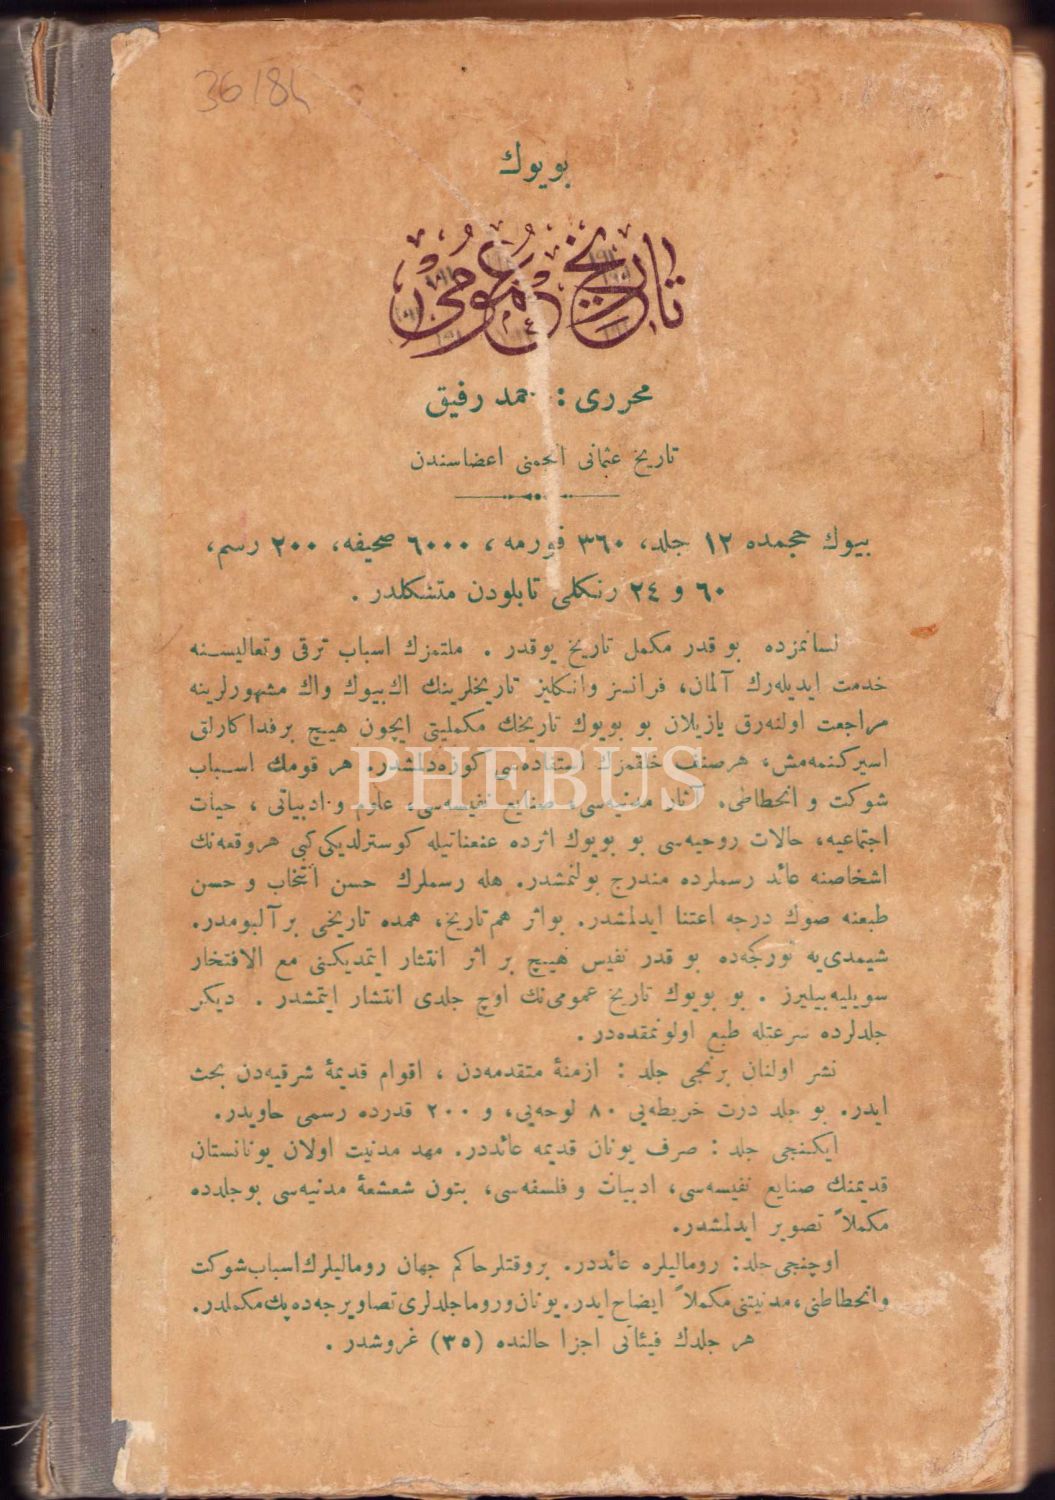 36184
بویوك
تاریخ عمومی
محرری : حمد رفیق
تاریخ عثمانی انجمنی اعضاسندن
بیوك حجمده ١٢ جلد، ٣٦٠ فورمه ، ٦٠٠٠ صحیفه، ٢٠٠ رسم،
٦٠ و ٢٤ رنکلی تابلودن متشکلدر .
لسانمزده بو قدر مکمل تاریخ یوقدر . ملتمزك اسباب ترقی وتعالیسـنه
خدمت ایدیله‌رك آلمان، فرانسز وانکلیز تاریخلرینك اك بیوك واك مشهورلرینه
مراجعت اولنه‌رق یازیلان بو بویوك تاریخك مکملیتی ایچون هیچ برفداکارلق
اسیرکنمه‌مش، هرصنف خلقمزك استفاده‌سی کوزه‌دلمشدر. هر قومك اسـباب
شوکت و انحطاطی، آثار مدنیه‌سی، صنایع نفیسه‌سی، علوم و ادبیاتی ، حیات
اجتماعیه، حالات روحیه‌سی بو بویوك اثرده عنعناتیله کوسترلدیکی کبی هروقعه‌نك
اشخاصنه عائد رسملرده مندرج بولنمشدر. هله رسملرك حسن انتخاب و حسن
طبعنه صوك درجه اعتنا ایدلمشدر. بواثر هم تاریخ، همده تاریخی بر آلبومدر.
شیمدی‌یه تورکجه‌ده بو قدر نفیس هیچ بر اثر انتشار ایتمدیکنی مع الافتخار
سویلیه‌بیلیرز . بو بویوك تاریخ عمومی‌نك اوچ جلدی انتشار ایتمشدر . دیکر
جلدلرده سرعتله طبع اولونمقده‌در .
نشر اولنان برنجی جلد : ازمنهٔ متقدمه‌دن ، اقوام قدیمهٔ شرقیه‌دن بحث
ایدر. بو جلد درت خریطه‌یی ٨٠ لوحه‌یی، و ٢٠٠ قدرده رسمی حاویدر.
ایکنجی جلد : صرف یونان قدیمه عائددر. مهد مدنیت اولان یونانستان
قدیمنك صنایع نفیسه‌سی، ادبیات و فلسفه‌سی، بتون شعشعهٔ مدنیه‌سی بوجلدده
مکملاً تصویر ایدلمشدر.
اوچنجی جلد: رومالیلره عائددر. بروقتلر حاکم جهان رومالیلرك اسباب شوکت
وانحطاطنی، مدنیتنی مکملاً ایضاح ایدر. یونان وروما جلدلری تصاویرجه‌ده پك مکملدر.
هر جلدك فیئاتی اجزا حالنده (٣٥) غروشدر .
PHEBUS